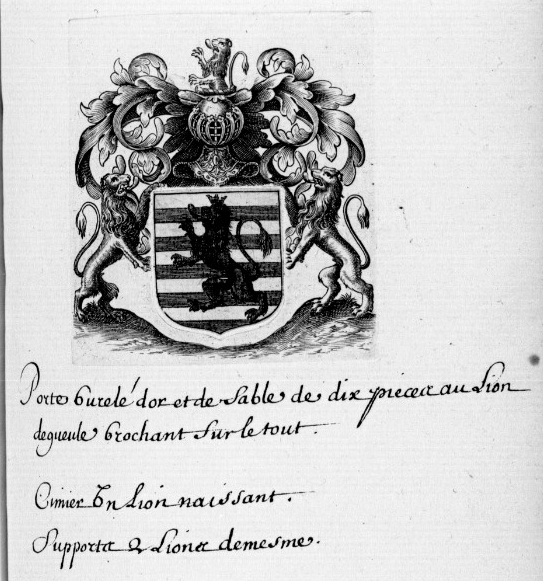 Porte burelé dor et de Sable de dix pieces au Lion
de gueule brochant Sur le tout.
Cimier Un Lion naissant.
Supports 2 Lions de mesme.